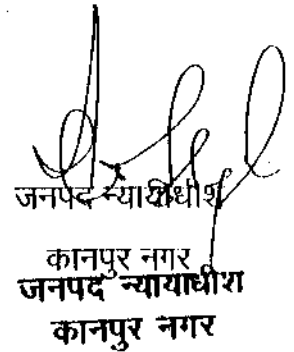 जनपद न्यायाधीश
कानपुर नगर
जनपद न्यायाधीश
कानपुर नगर